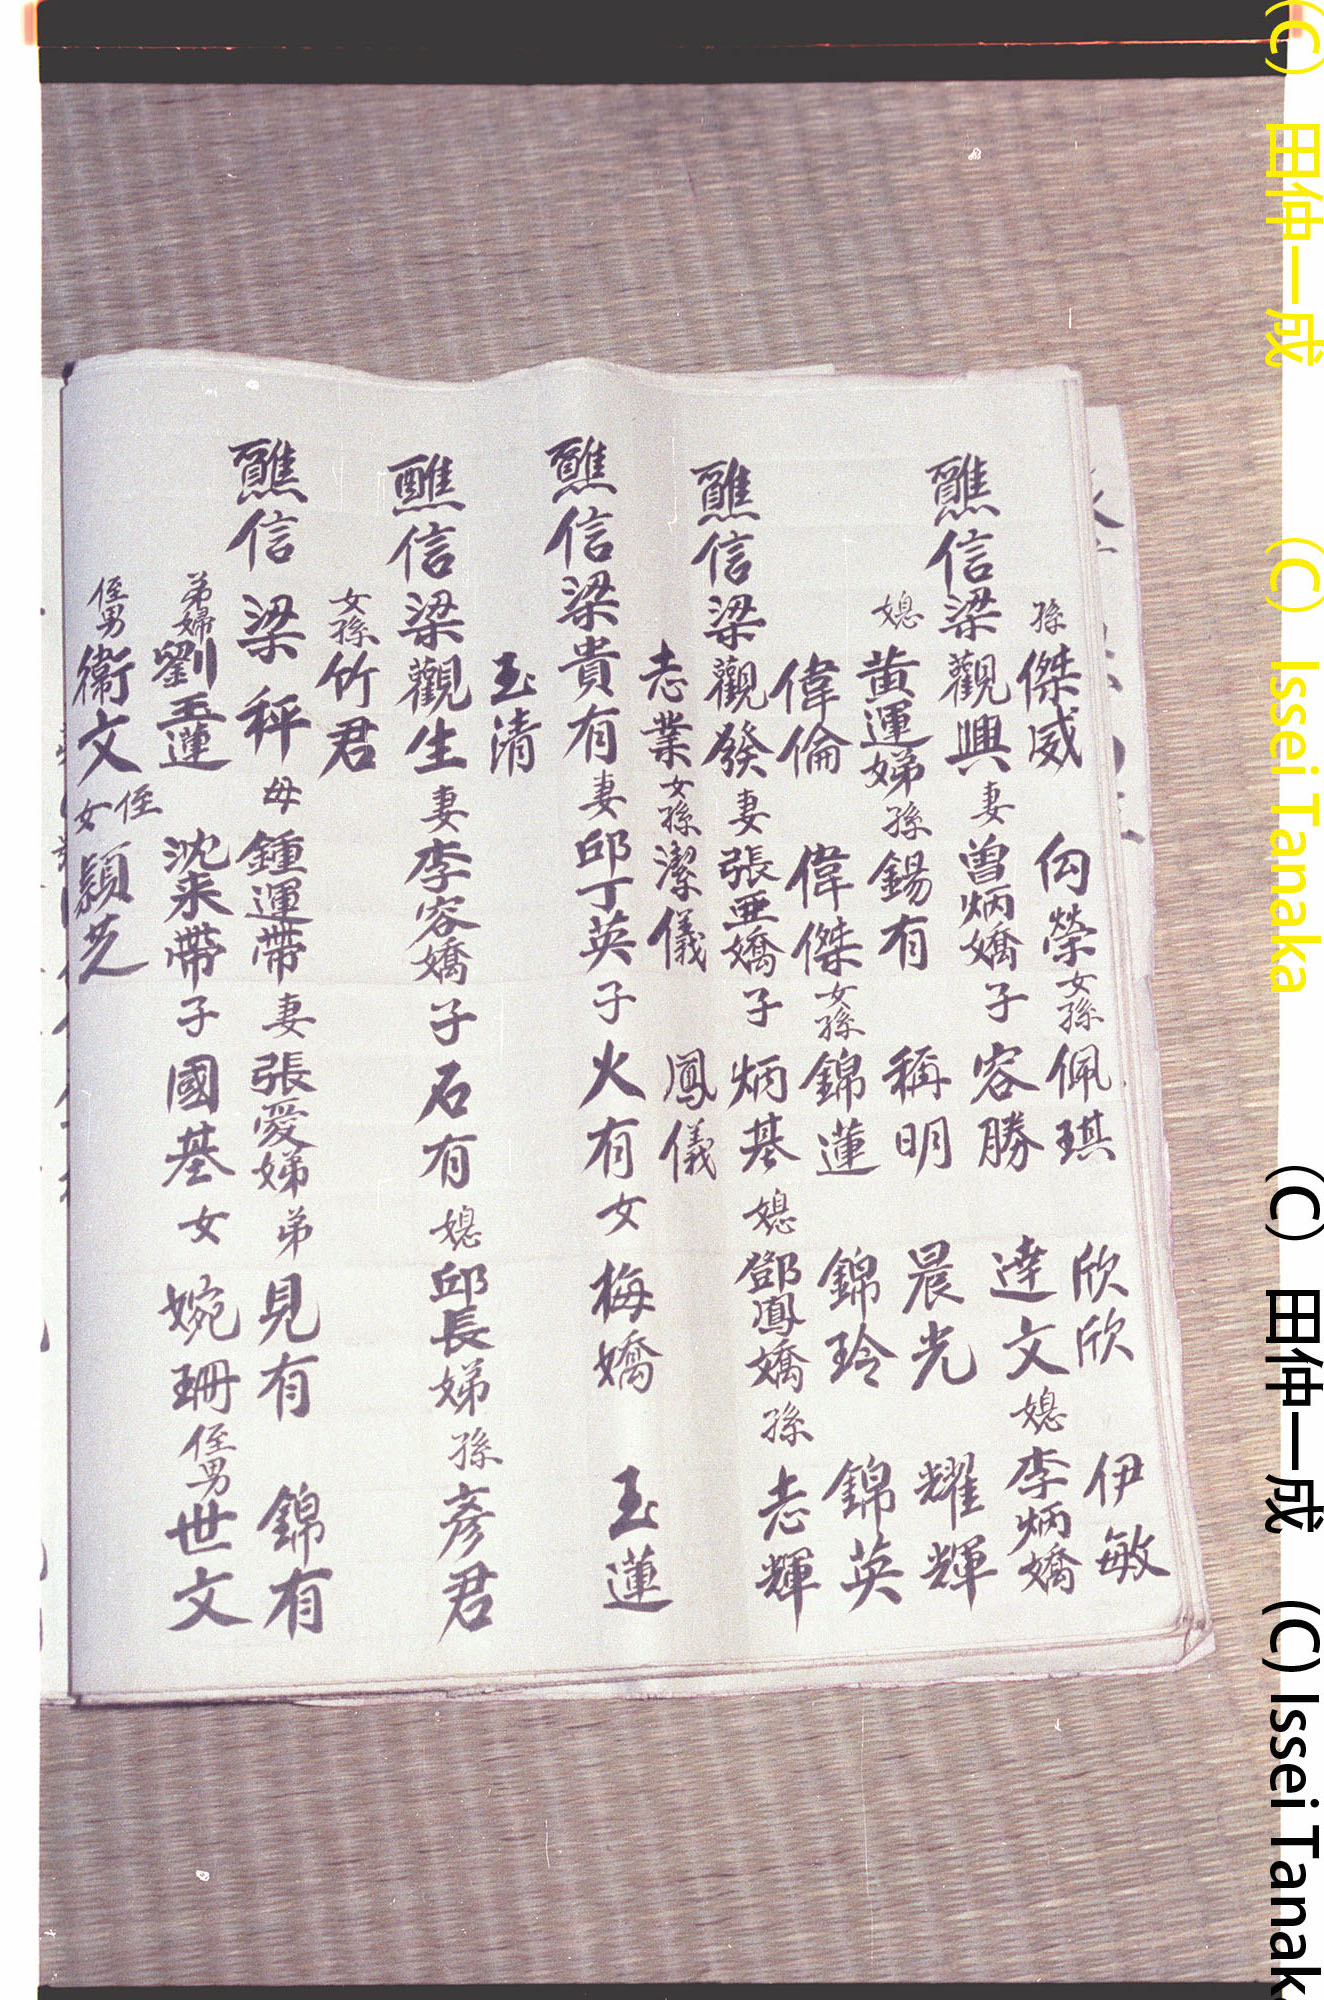 孫傑威 向榮女孫佩琪 欣欣 伊敏
醮信梁觀興妻曾炳嬌子容勝 達文媳李炳嬌
媳黄運娣孫錫有 稱明 晨光 耀輝
偉倫 偉傑女孫錦蓮 錦玲 錦英
醮信梁觀發妻張亜嬌子炳基媳鄧鳳嬌孫志輝
志業女孫潔儀 鳳儀
醮信梁貴有妻邱丁英子火有女梅嬌 玉蓮
玉清
醮信梁觀生妻李容嬌子石有媳邱長娣孫彥君
女孫竹君
醮信梁秤母鍾運帶妻張愛娣弟見有 錦有
弟婦劉玉蓮 沈来帶子國基女婉珊侄男世文
侄男衞文侄女穎芝
(C) 田仲一成 (C) Issei Tanaka
(C) 田仲一成 (C) Issei Tanak